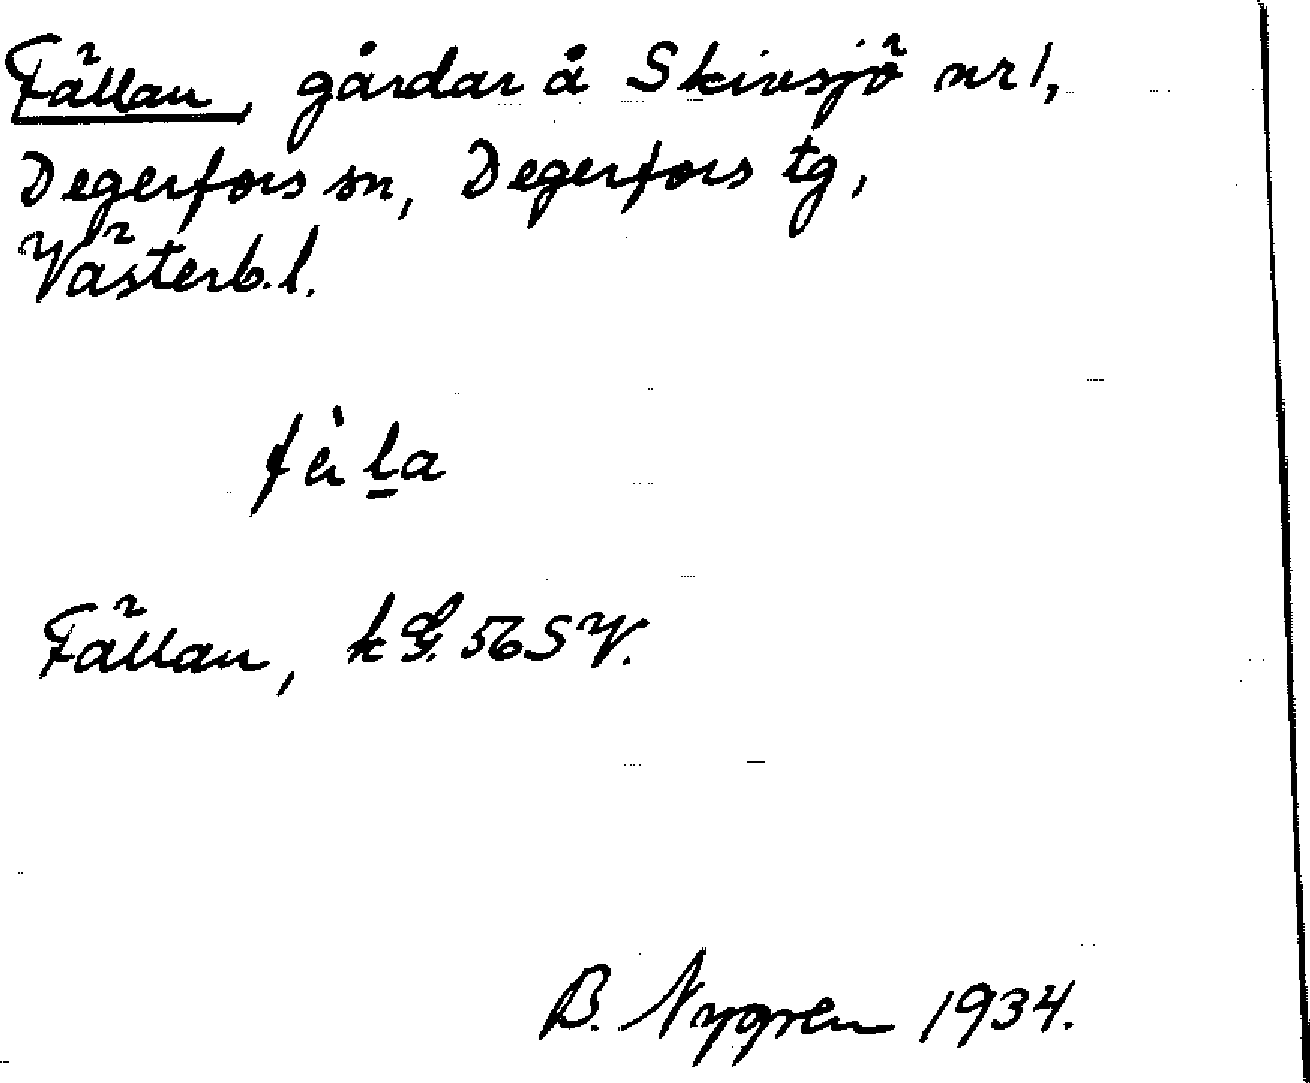 Fällan, gårdar å Skivsjö nr 1,
Degerfors sn, Degerfors tg,
Västerb. l.
Fällan, kG. 56 SV.
B. Nygren 1934.